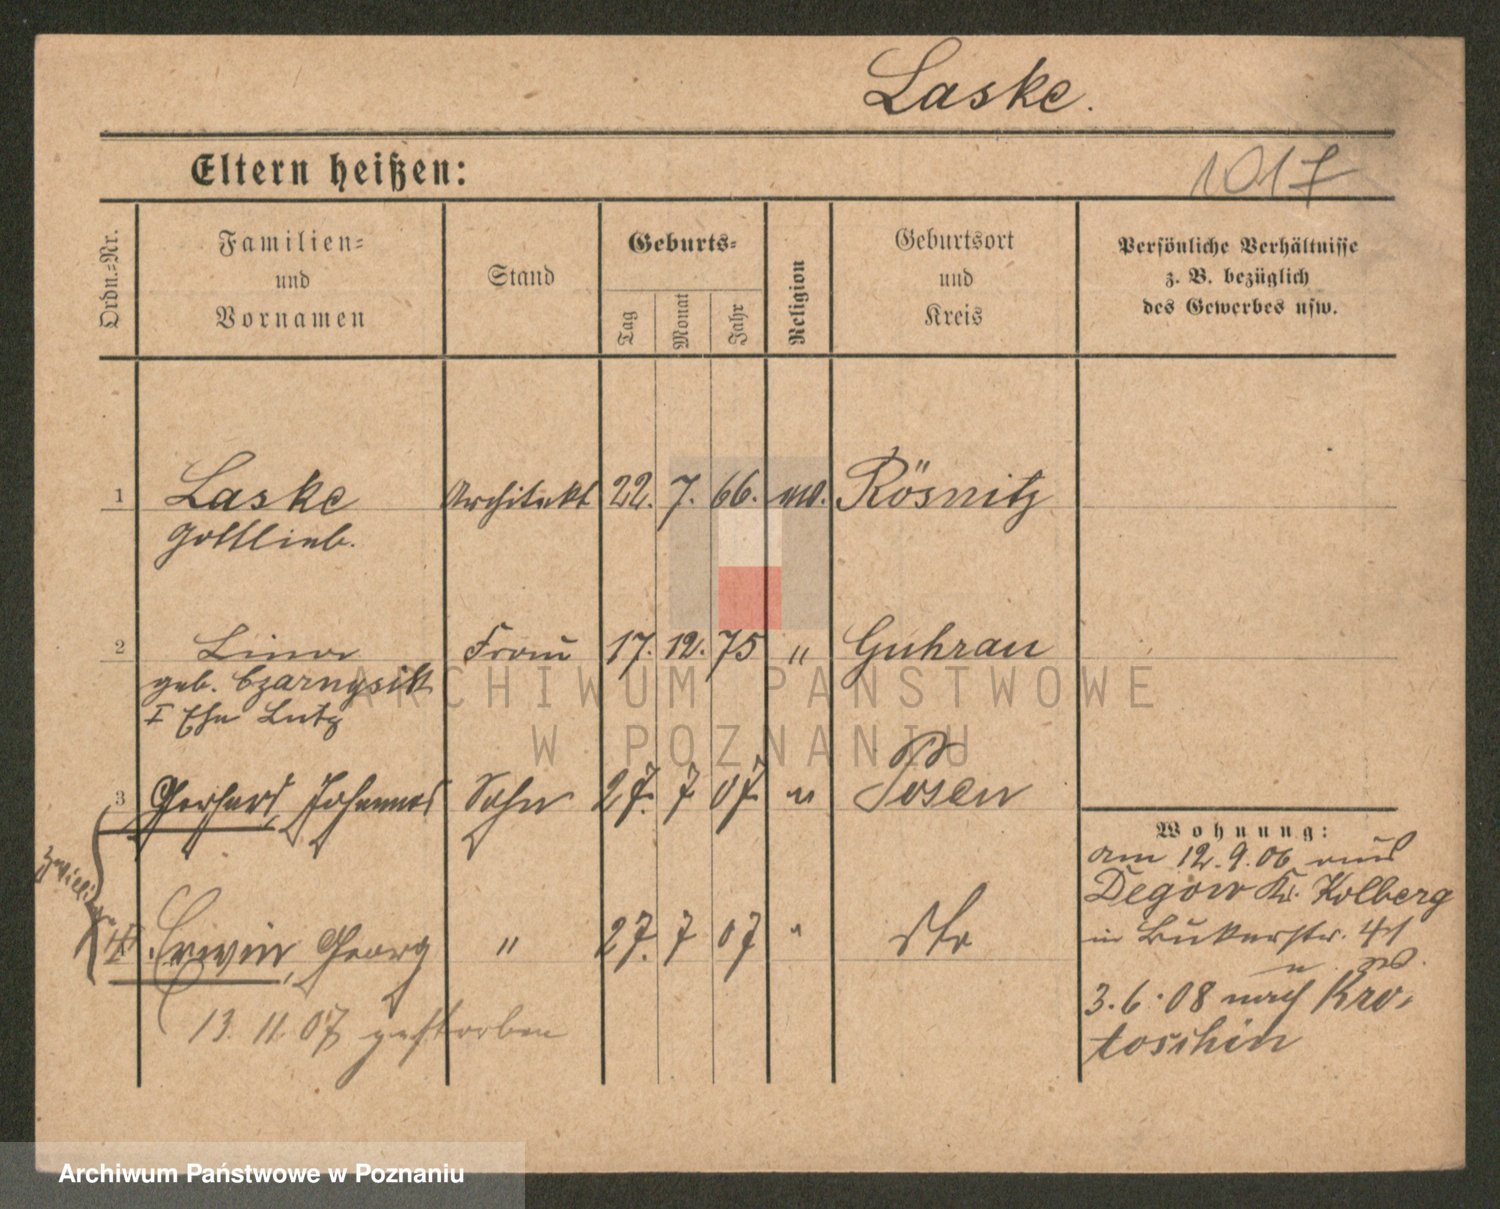 Laske.
Eltern heißen:
1017
Ordn.-Nr.
Familien-
und
Vornamen
Stand
Geburts-
Tag
Monat
Jahr
Religion
Geburtsort
und
Kreis
Persönliche Verhältnisse
z. B. bezüglich
des Gewerbes usw.
1 Laske Architekt 22. 7. 66. ev. Rösnitz
Gottlieb.
2 Frau 17. 12. 75 " Guhrau
geb. Czarnysik
I Ehe Lutz
3 Gerhard, Johannes Sohn 27. 7 07. " Posen
Zwillinge
4 Erwin, Georg " 27. 7 07 " dto
13. 11. 07 gestorben
Wohnung:
am 12. 9. 06 aus
Degow Kr. Kolberg
in Bukerstr. 41
3. 6. 08 nach Kro-
toschin
ARCHIWUM PAŃSTWOWE
W POZNANIU
Archiwum Państwowe w Poznaniu